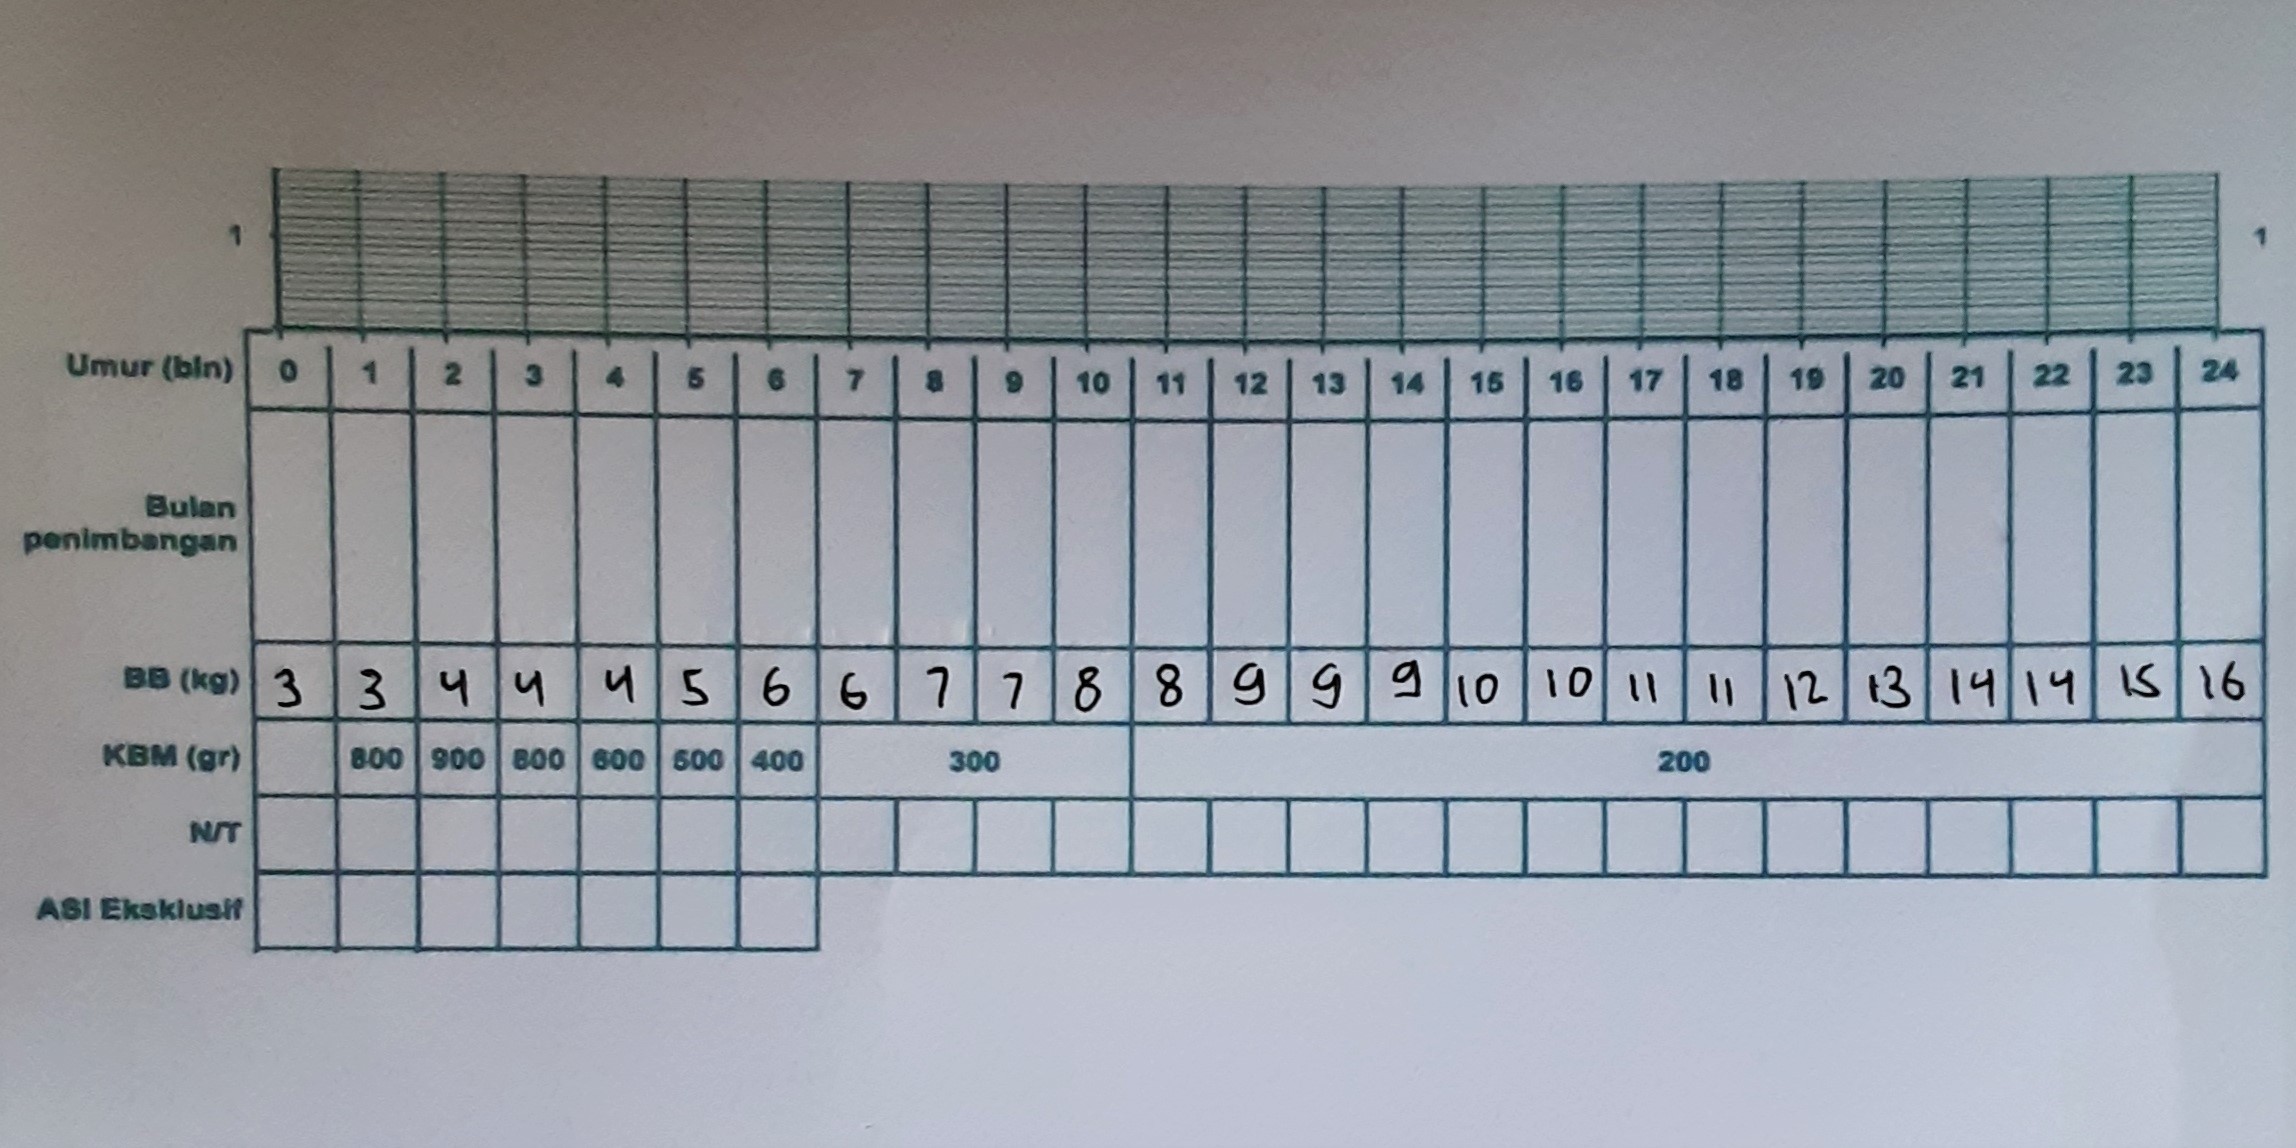 1 1
Umur (bln) 0 1 2 3 4 5 6 7 8 9 10 11 12 13 14 15 16 17 18 19 20 21 22 23 24
Bulan
penimbangan
BB (kg) 3 3 4 4 4 5 6 6 7 7 8 8 9 9 9 10 10 11 11 12 13 14 14 15 16
KBM (gr) 800 900 800 600 500 400 300 200
N/T
ASI Eksklusif